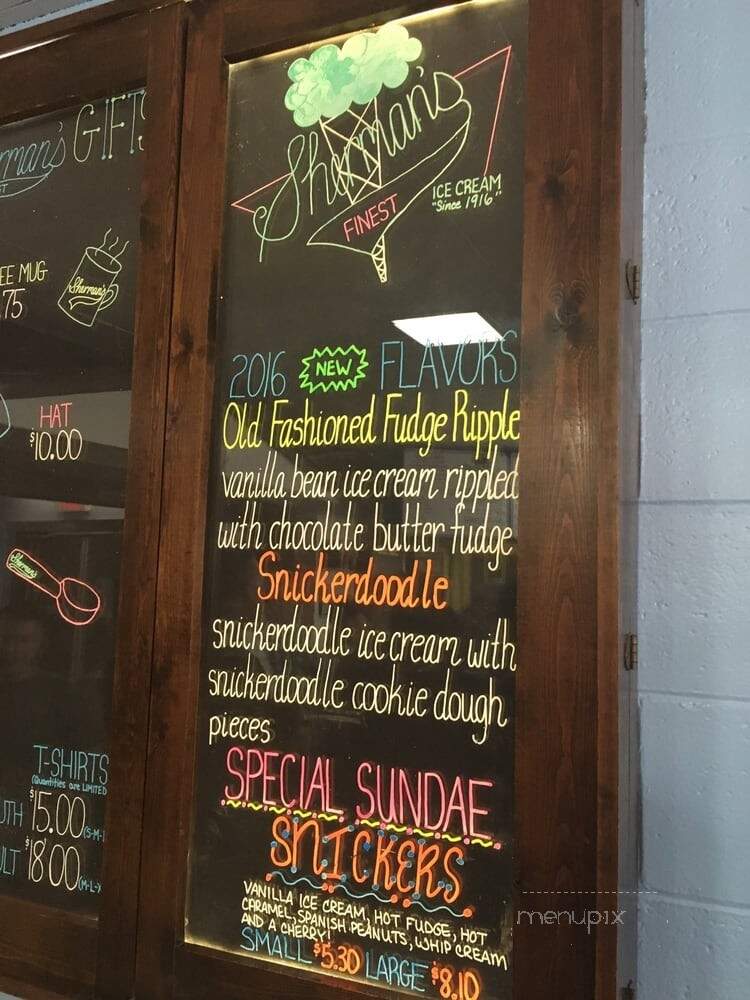 GIFTS
Sherman's
75
HAT
$10.00
Sherman's
T-SHIRTS
(Quantities are LIMITED
$15.00 (S-M-
$18.00 (M-L-
Sherman's
FINEST
ICE CREAM
"Since 1916"
2016 NEW FLAVORS
Old Fashioned Fudge Ripple
vanilla bean ice cream rippled
with chocolate butter fudge
Snickerdoodle
snickerdoodle ice cream with
snickerdoodle cookie dough
pieces
SPECIAL SUNDAE
SNICKERS
VANILLA ICE CREAM, HOT FUDGE, HOT
CARAMEL, SPANISH PEANUTS, WHIP CREAM
AND A CHERRY!
SMALL $5.30 LARGE $8.10
menupix